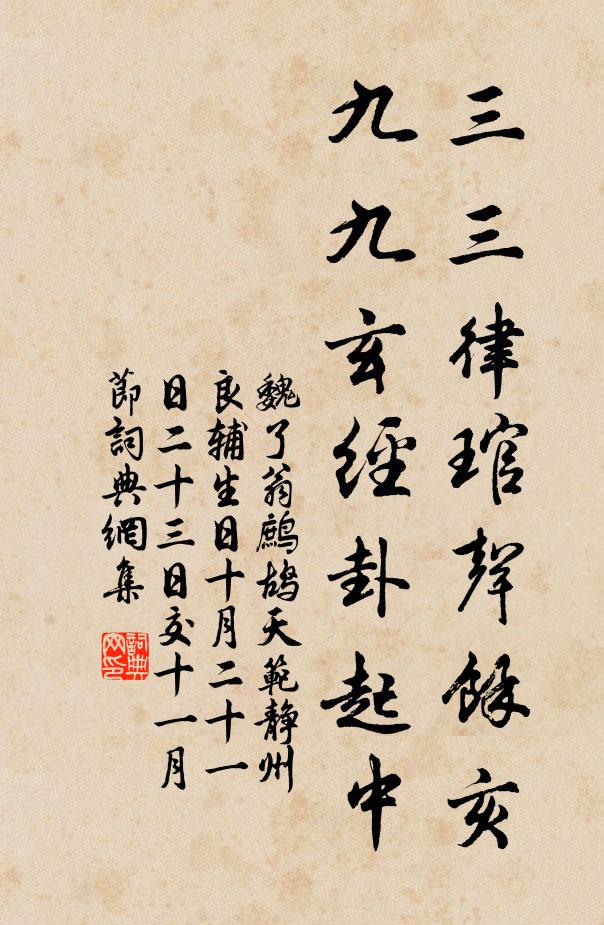 三三律琯聲餘亥
九九玄經卦起中
魏了翁鷓鴣天範靜州
良輔生日十月二十一
日二十三日交十一月
節詞典網集
詞典
网印